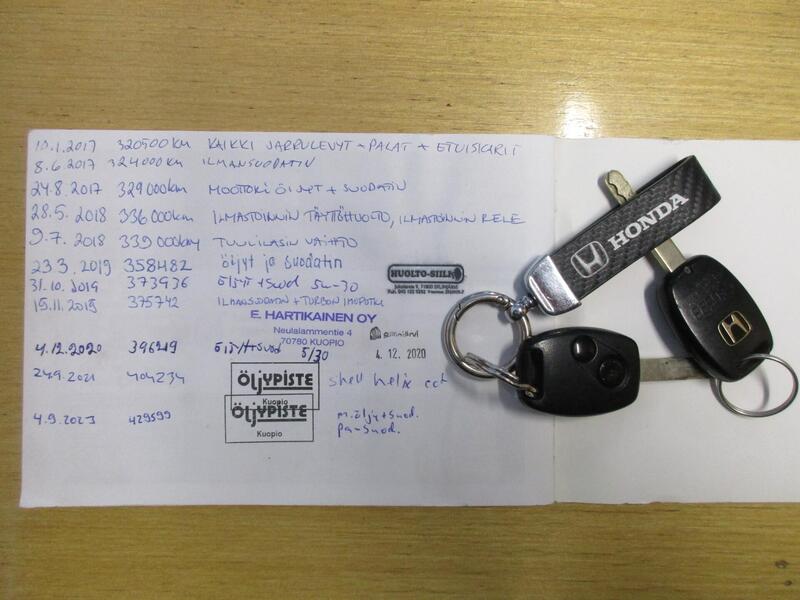 10.1.2017 320500 KM KAIKKI JARRULEVYT + PALAT + ETUISKARIT
8.6.2017 324000 KM ILMANSUODATIN
24.8.2017 329000km MOOTTORI ÖLJYT + SUODATIN
28.5.2018 336000km ILMASTOINNIN TÄYTTÖHUOLTO, ILMASTOINNIN RELE
9.7.2018 339000km TUULILASIN VAIHTO
23.3.2019 358482 öljyt ja suodatin
HUOLTO-SIILI
31.10.2019 373936 ÖLJYT + SUOD 5W-30
15.11.2019 375742 ILMANSUODATIN + TURBON IMUPUTKI
E. HARTIKAINEN OY
Neulalammentie 4
70780 KUOPIO
4.12.2020 396219 ÖLJYT+SUOD 5/30
4. 12. 2020
24.9.2021 404234 ÖLJYPISTE shell helix
Kuopio
4.9.2023 429599 ÖLJYPISTE m.öljy+suod.
Kuopio
pa-suod.
HONDA